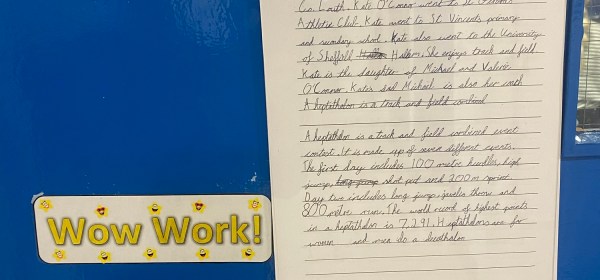 Co. Louth. Kate O'Connor went to St Gerards
Athletic Club. Kate went to St. Vincents primary
and secondary school. Kate also went to the University
of Sheffield, Hallam. She enjoys track and field.
Kate is the daughter of Michael and Valerie
O'Connor. Kates dad Michael is also her coach
A heptathalon is a track and field combined
A heptathlon is a track and field combined event
contest. It is made up of seven different events.
The first day includes 100 metre hurdles, high
jump, long jump shot put and 200m sprint
Day two includes long jump, javelin throw and
800 metre run. The world record of highest points
in a heptathalon is 7,291. Heptathalons are for
women and men do a decathalon
Wow Work!